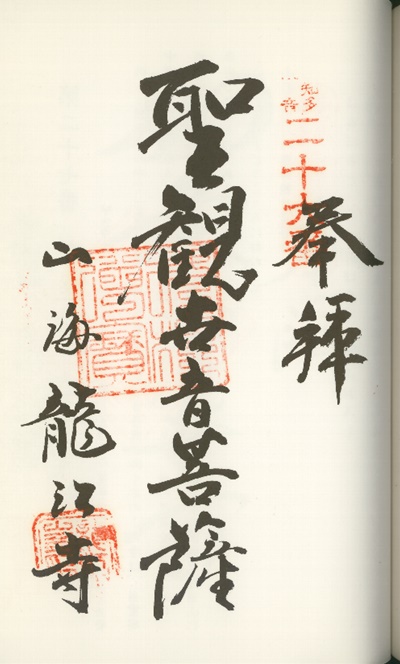 二十九番
奉拝
聖観世音菩薩
山海龍江寺